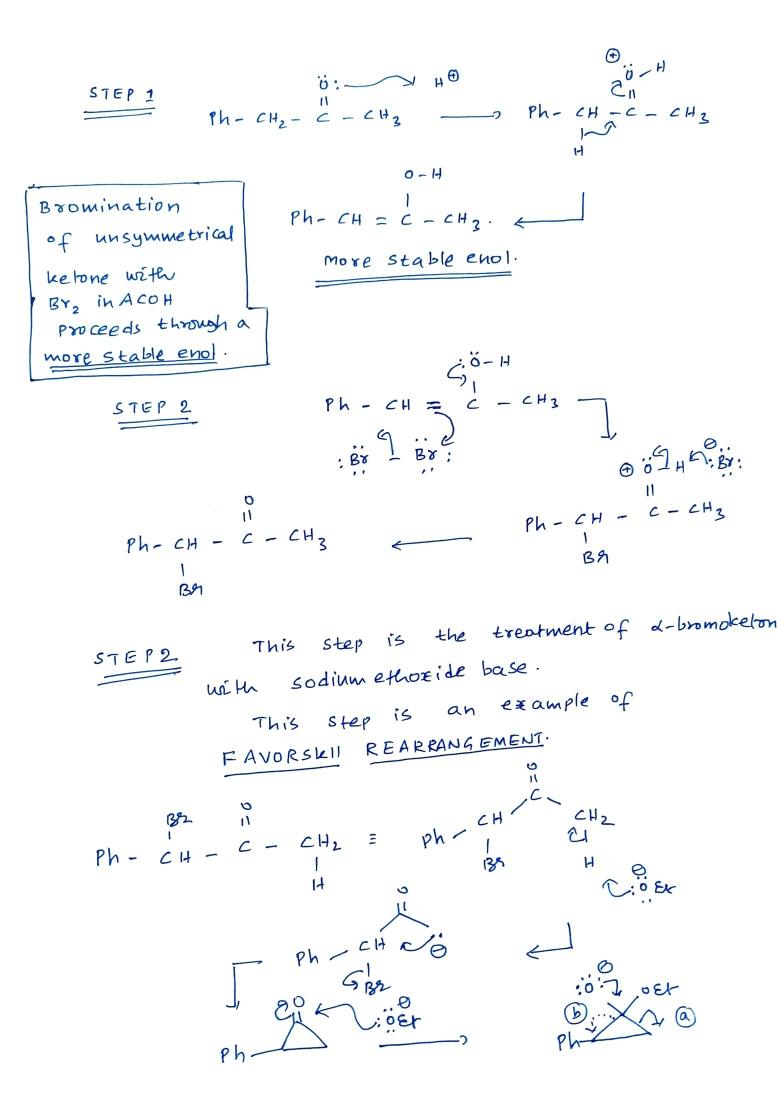 STEP 1
Ö: H⊕
Ph - CH2 - C - CH3
⊕
Ö - H
Ph - CH - C - CH3
H
Bromination
of unsymmetrical
ketone with
Br2 in ACOH
proceeds through a
more stable enol.
O - H
Ph - CH = C - CH3.
More stable enol.
STEP 2
:Ö - H
Ph - CH = C - CH3
:Br - Br:
⊕ Ö H :Br: ⊖
Ph - CH - C - CH3
Br
O
Ph - CH - C - CH3
Br
STEP 2
This step is the treatment of α-bromoketon
with sodium ethoxide base.
This step is an example of
FAVORSKII REARRANGEMENT.
Br O
Ph - CH - C - CH2
H
≡
O
C
CH CH2
Ph Br H
⊖
:OEt
O
Ph - CH ⊖
Br
O ⊖
:OEt
Ph
⊖
:O: OEt
b a
Ph